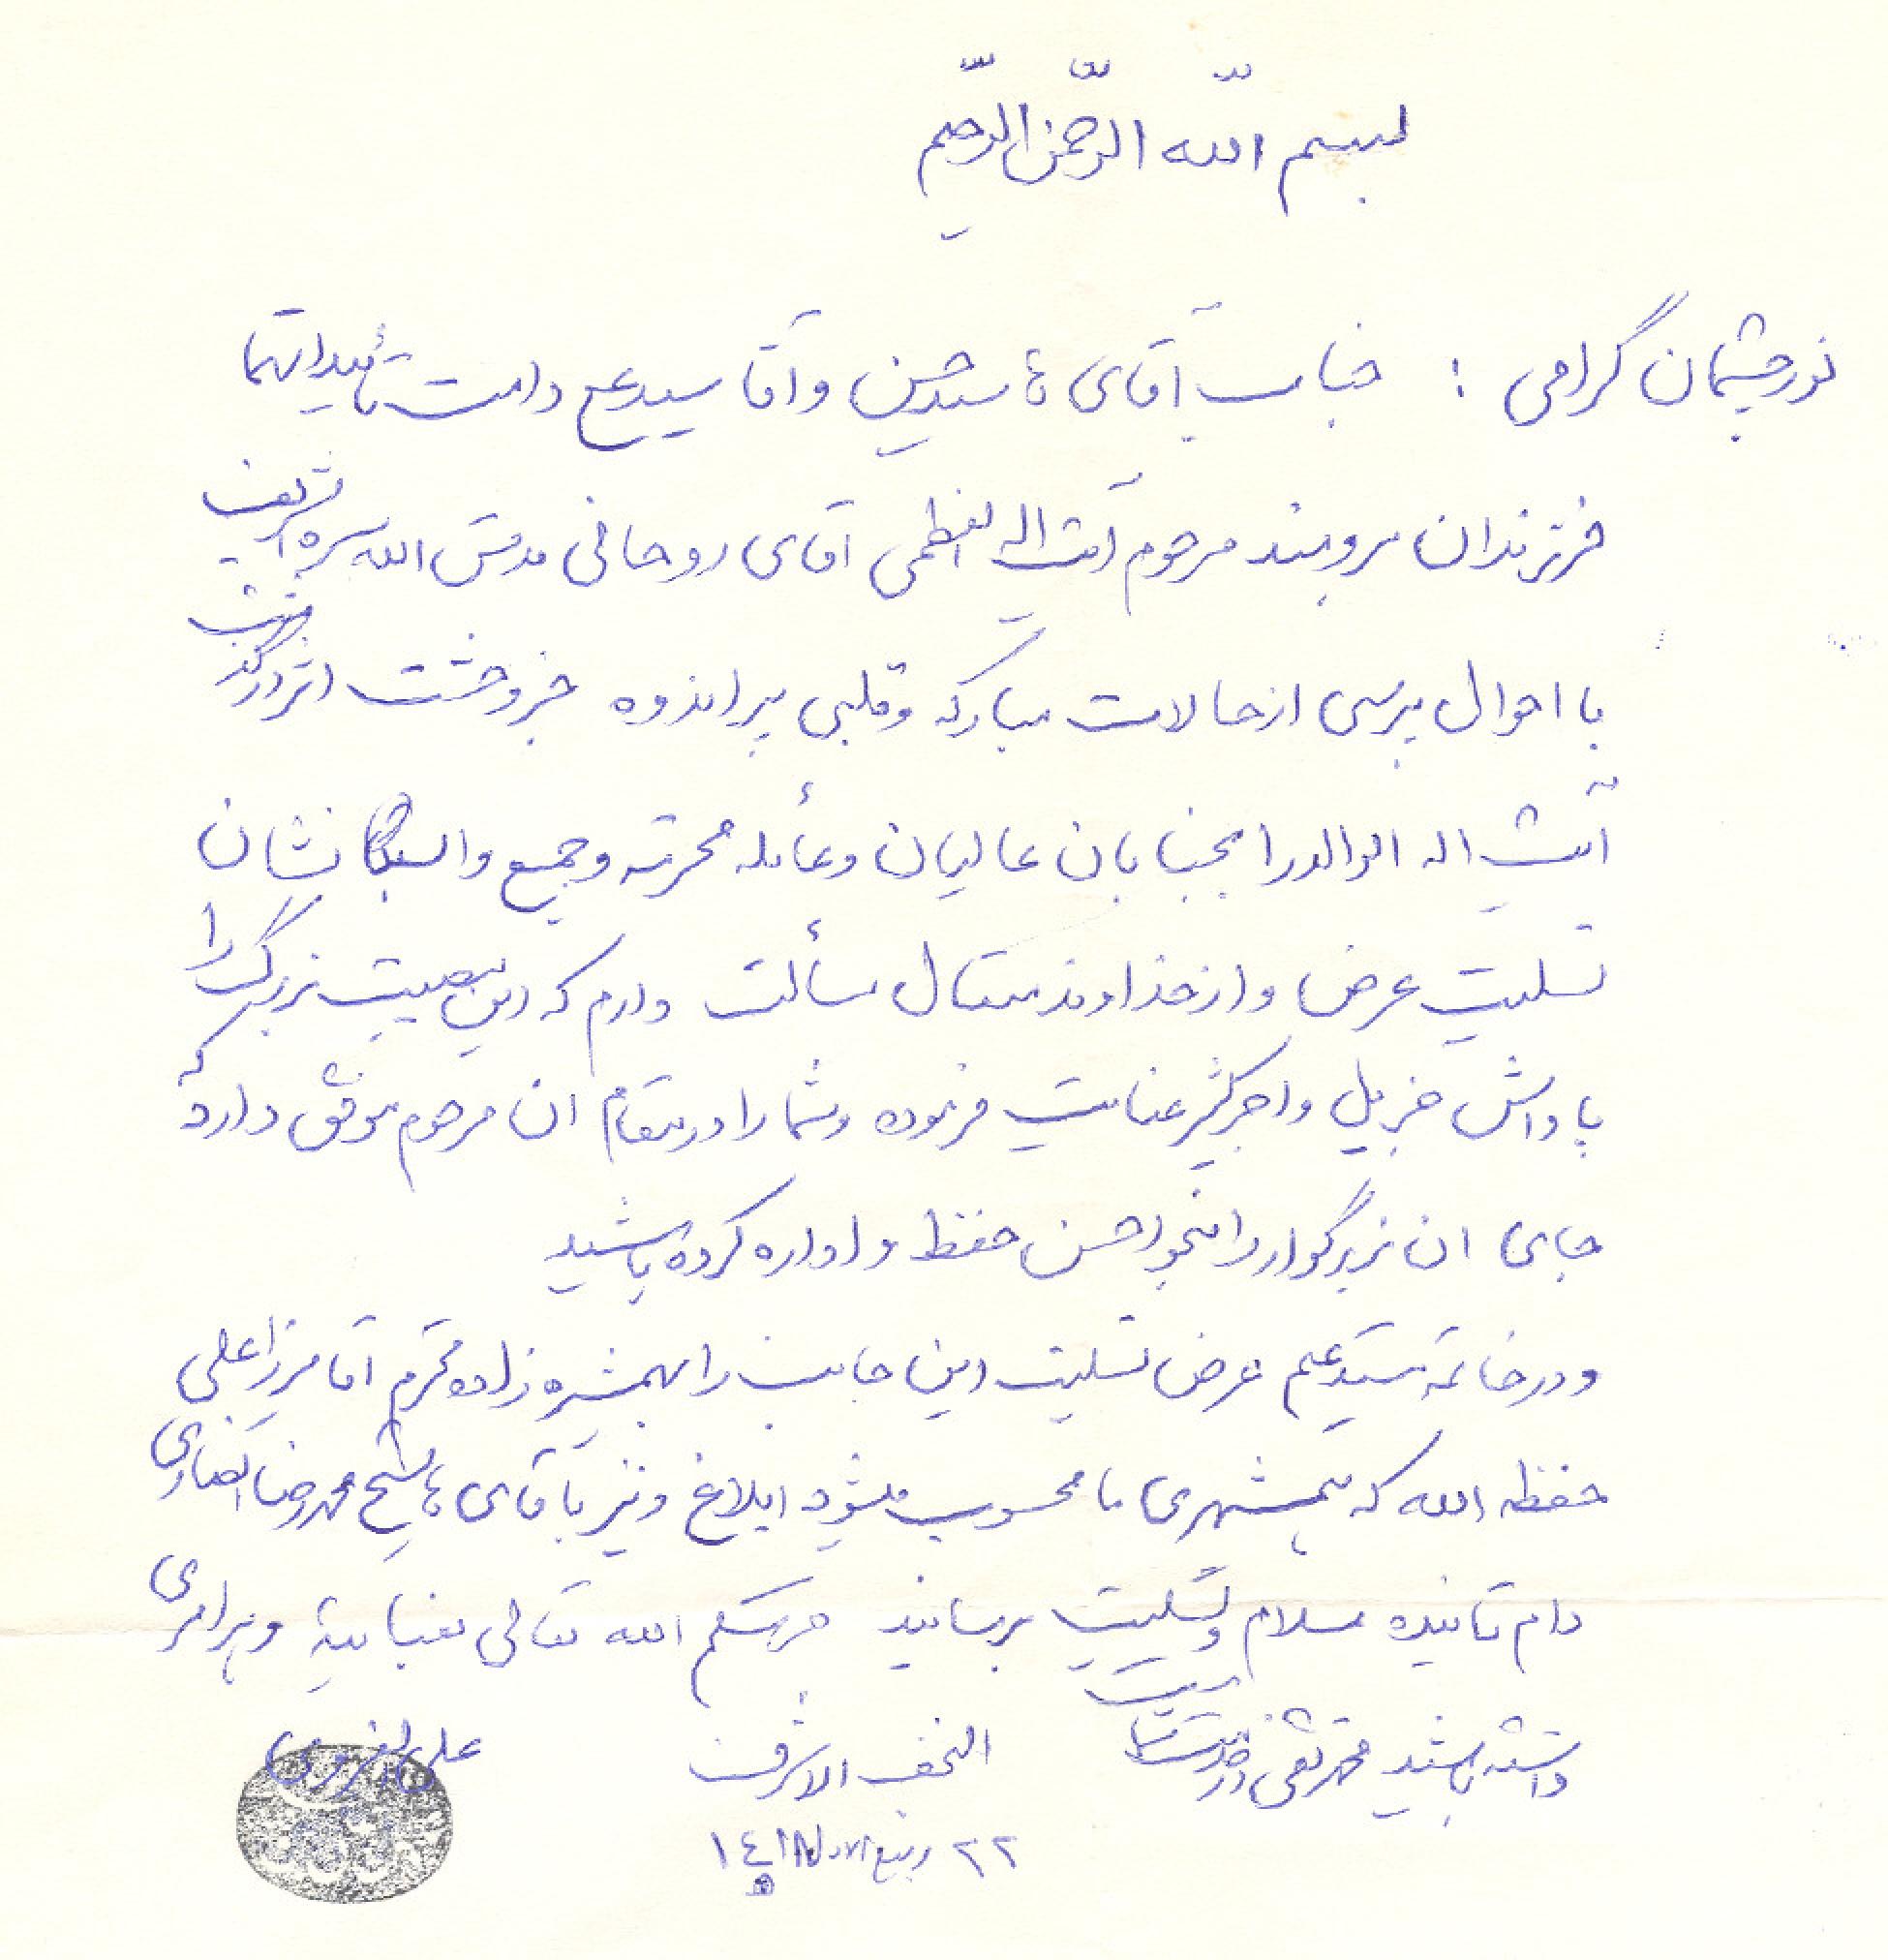 بسم الله الرحمن الرحیم
نورچشمان گرامی : جناب آقای سید حسن و آقا سید دامت تأییداتهما
فرزندان مرحوم آیت الله العظمی آقای روحانی قدس الله سره الشریف
با احوال پرسی از حالات مبارکه و قلبی پر اندوه خبر وحشت اثر درگذشت
آیت اله الوالد را بجنابان عالیان و عائله محترمه و جمیع وابستگانشان
تسلیت عرض و از خداوند متعال مسألت دارم که در این مصیبت بزرگ را
پاداش جزیل و اجر کثیر عنایت فرموده و شما را در مقام ان مرحوم موفق دارد که
جای ان بزرگوار را بنحو احسن حفظ و اداره کرده باشید
و در خاتمه مستدعیم عرض تسلیت این جانب را بهمشیره زاده محترم آقا میرزا علی
حفظه الله که همشهری ما محسوب میشود ابلاغ و نیز با قای شیخ محمدرضا انصاری
دام تائیده سلام و تسلیت برسانید حرسکم الله تعالی بعنایته و برابری
داشته باشید محمد تقی
النجف الاشرف
علی الغروی
٢٢ ربیع الاول ١٤١٨